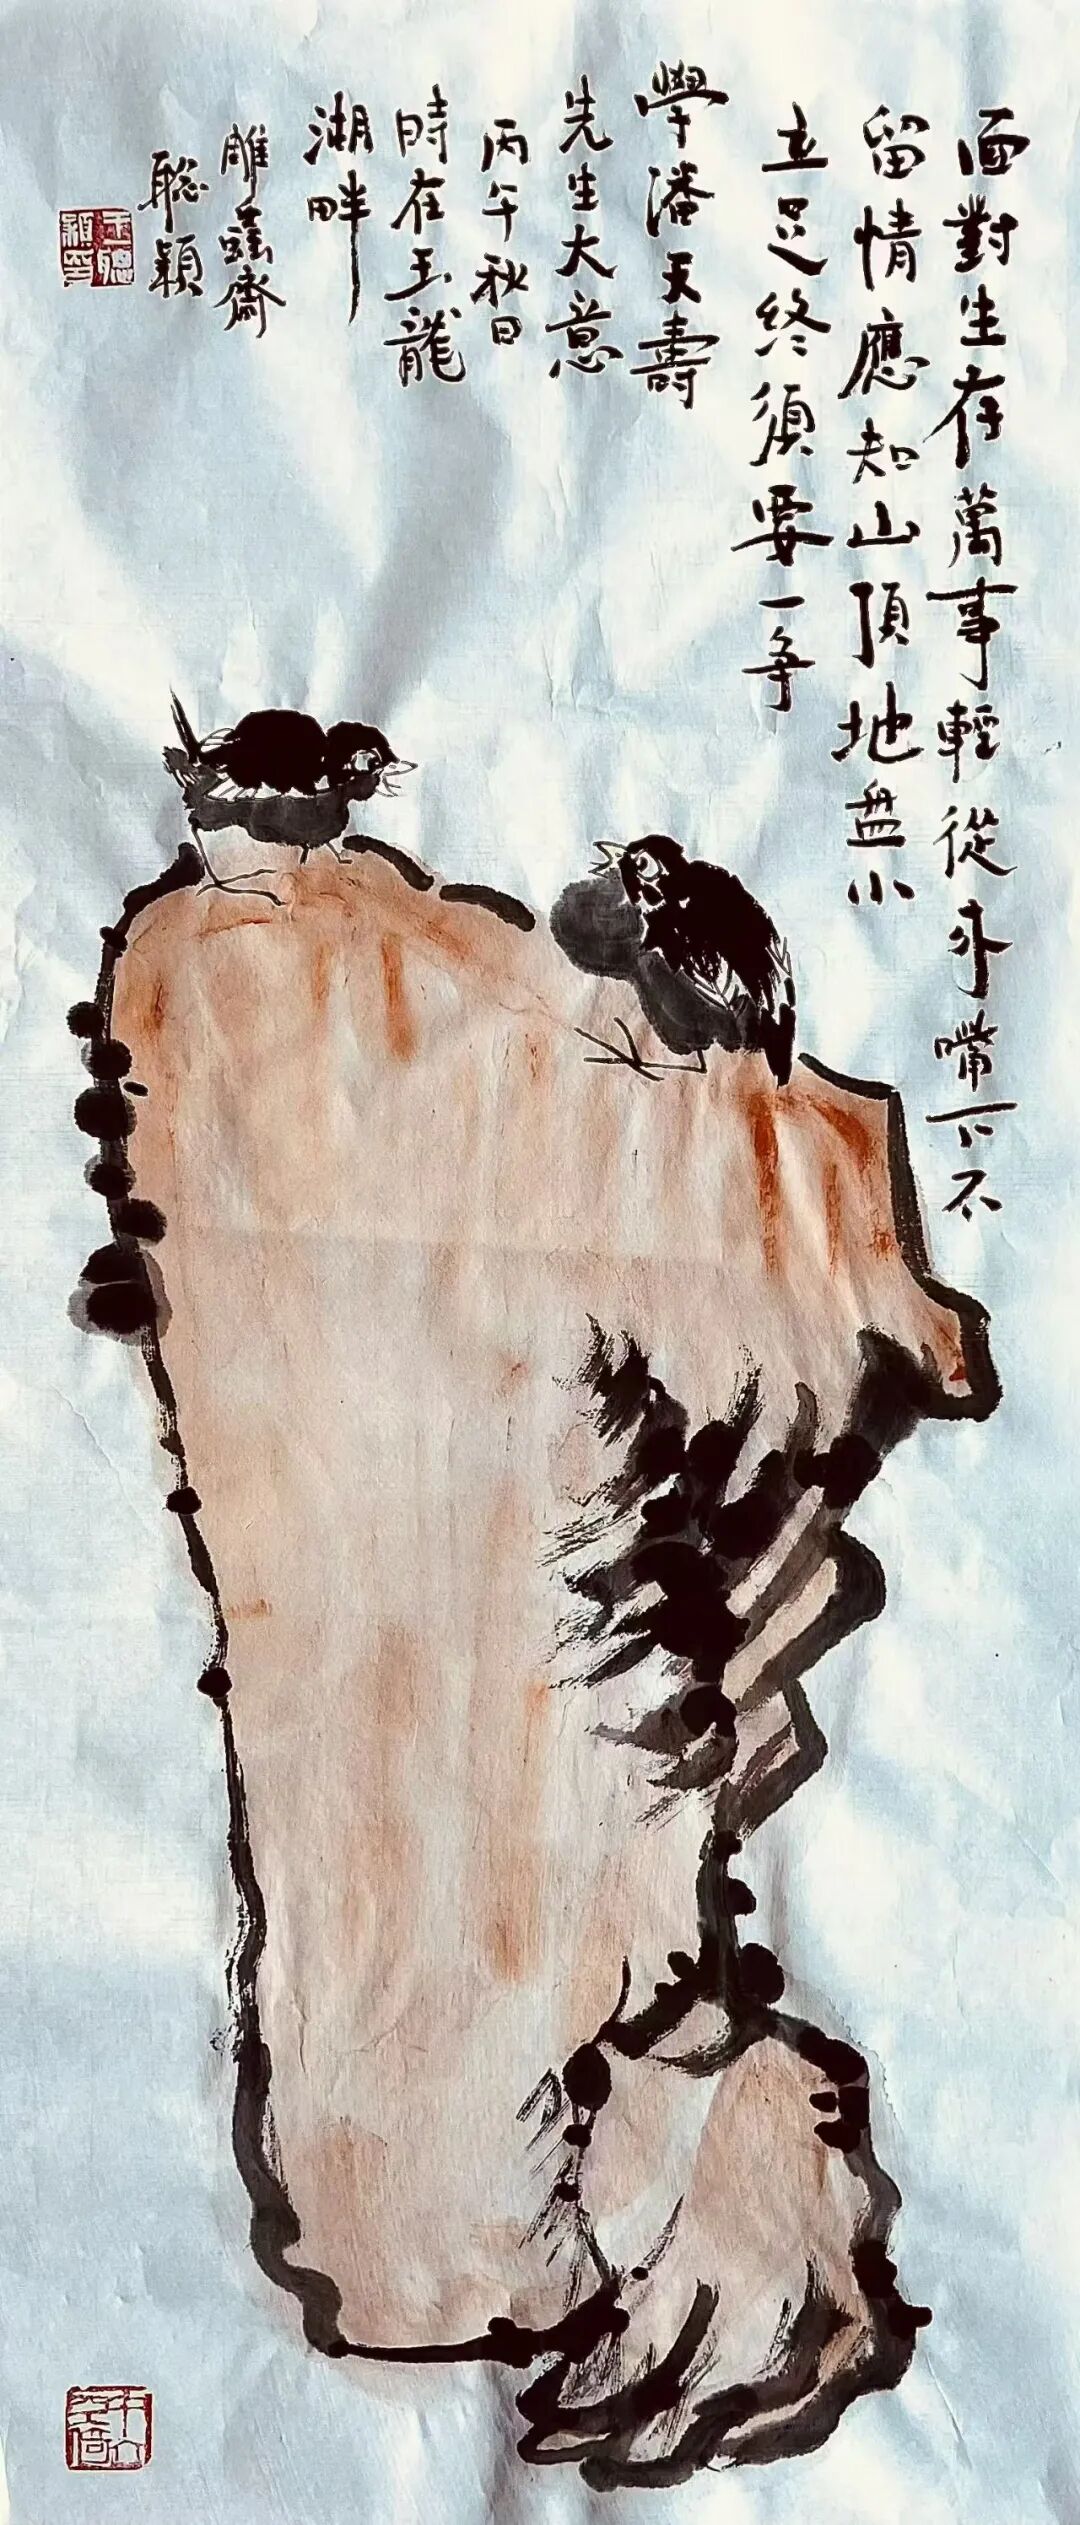 面對生存萬事輕從來嘴下不
留情應知山頂地盤小
立足終須要一爭
學潘天壽
先生大意
丙午秋日
時在玉龍
湖畔
雕蟲齋
聰穎